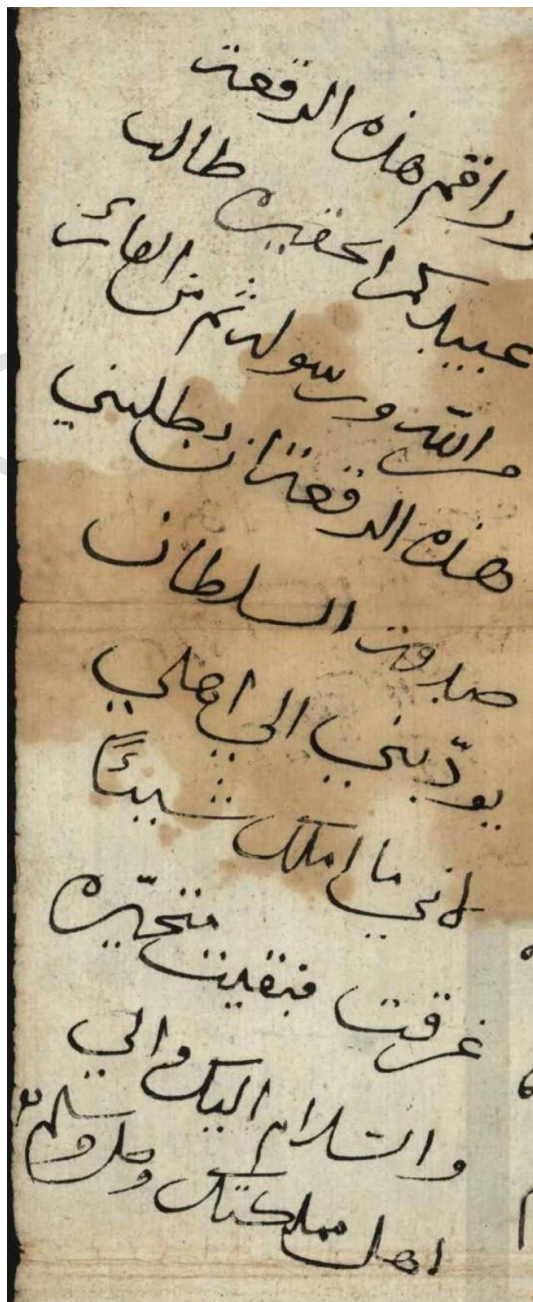 وراقم هذه الرقعة
عبيدكم الحقير طالب
من الله ورسوله ثم من
هذه الرقعة ان يطلبني
صدقت السلطان
يودّيني الي اهلي
لاني ما املك شيئاً
غرقت فبقيت متحيّره
والسلام اليك والي
اهل مملكتك وصل وسلم